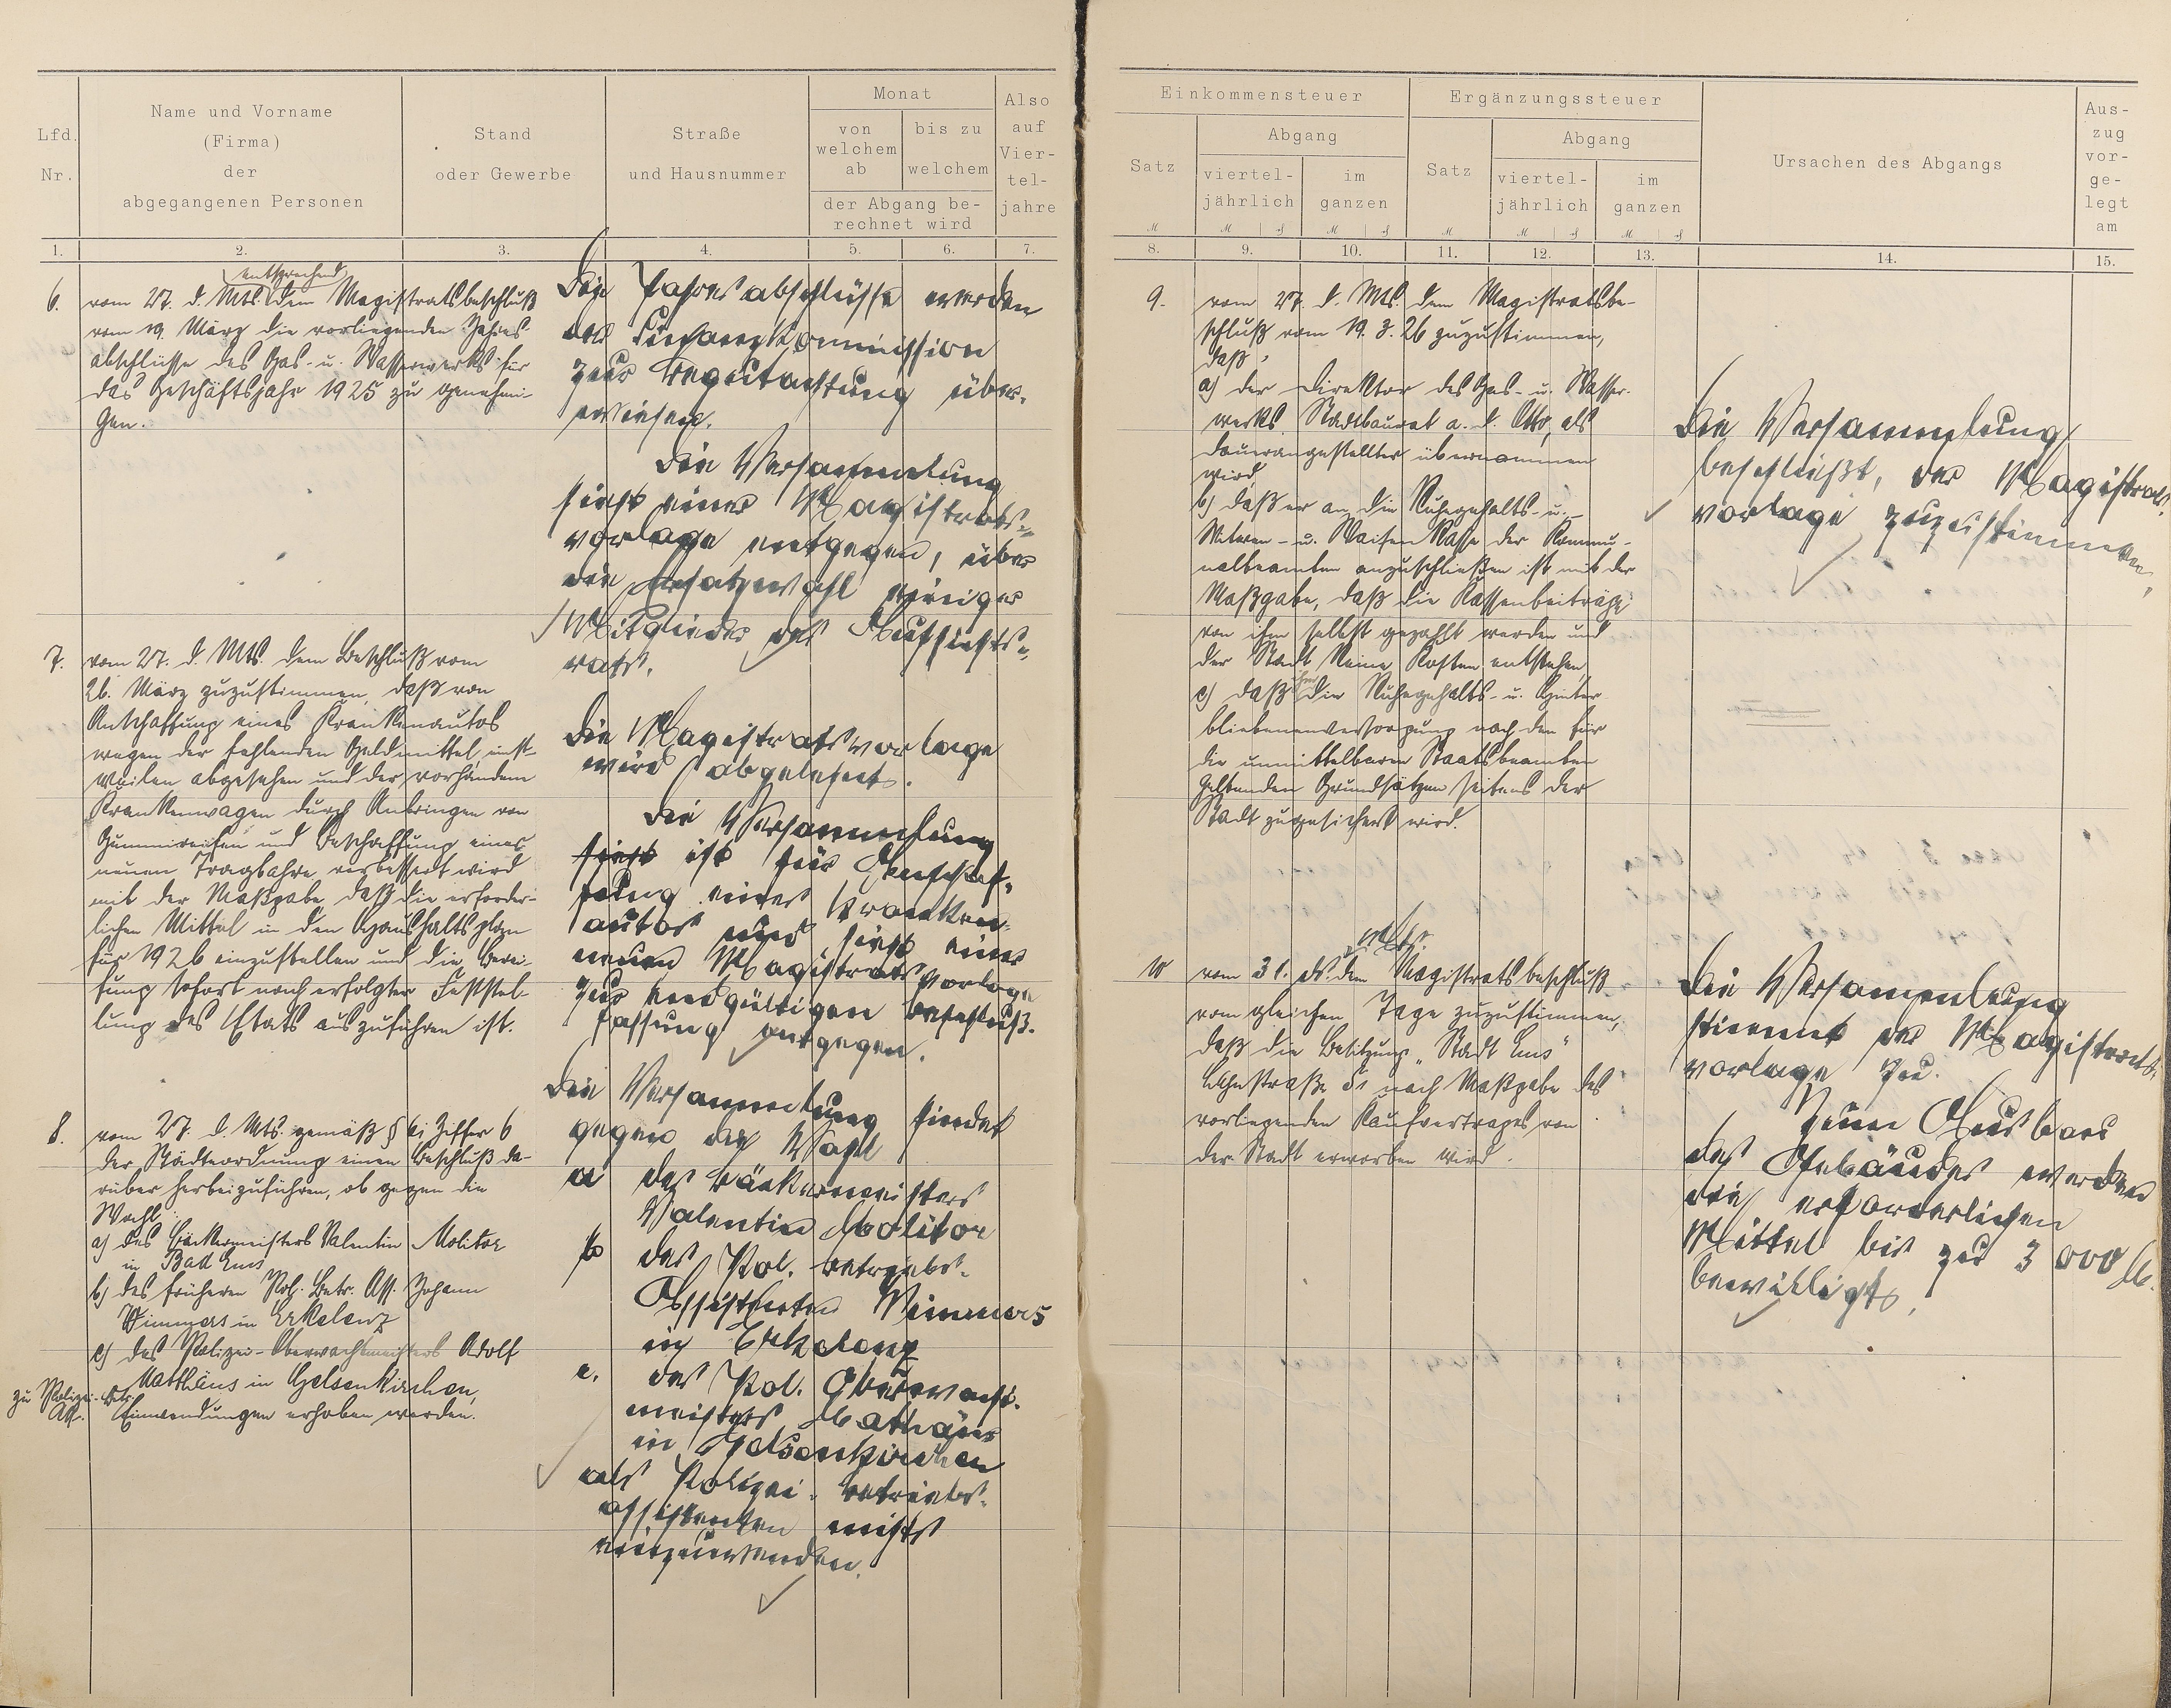 Lfd. Nr.
Name und Vorname
(Firma)
der
abgegangenen Personen
Stand
oder Gewerbe
Straße
und Hausnummer
Monat
von
welchem
ab
bis zu
welchem
der Abgang be-
rechnet wird
Also
auf
Vier-
tel-
jahre
1. 2. 3. 4. 5. 6. 7.
6. vom 27. d. Mts. entsprechend dem Magistratsbeschluß
vom 19. März die vorliegenden Jahres-
abschlüsse des Gas- u. Wasserwerks für
das Geschäftsjahr 1925 zu genehmi-
gen.
Die Jahresabschlüsse werden
der Finanzkommission
zur Begutachtung über-
wiesen.
Die Versammlung
sieht einer Magistrats-
vorlage entgegen, über
die Ersatzwahl einiger
Mitglieder des Aufsichts-
rats.
7. vom 27. d. Mts. dem Beschluß vom
26. März zuzustimmen, daß von
Anschaffung eines Krankenautos
wegen der fehlenden Geldmittel einst-
weilen abgesehen und der vorhandene
Krankenwagen durch Anbringen von
Gummireifen und Beschaffung einer
neuen Tragbahre verbessert wird
mit der Maßgabe, daß die erforder-
lichen Mittel in den Haushaltsplan
für 1926 einzustellen und die Berei-
fung sofort nach erfolgter Feststel-
lung des Etats auszuführen ist.
Die Magistratsvorlage
wird abgelehnt.
Die Versammlung
sieht ist für Anschaf-
fung eines Kranken-
autos und sieht einer
neuen Magistratsvorlage
zur endgültigen Beschluß-
fassung entgegen.
8. vom 27. d. Mts. gemäß § 61 Ziffer 6
der Städteordnung einen Beschluß da-
rüber herbeizuführen, ob gegen die
Wahl:
a) des Bäckermeisters Valentin Molitor
in Bad Ems
b) des früheren Pol. Betr. Ass. Johann
Wimmers in Erkelenz
c) des Polizei-Oberwachtmeisters Adolf
Matthäus in Gelsenkirchen,
zu Polizei-Betr.
Ass. Einwendungen erhoben werden.
Die Versammlung findet
gegen die Wahl
a des Bäckermeisters
Valentin Molitor
b des Pol. Betriebs-
Assistenten Wimmers
in Erkelenz
c. des Pol. Oberwacht-
meisters Mathäus
in Gelsenkirchen
als Polizei-Betriebs-
assistenten nichts
einzuwenden.
Einkommensteuer
Satz
Abgang
viertel-
jährlich
im
ganzen
Ergänzungssteuer
Satz
Abgang
viertel-
jährlich
im
ganzen
Ursachen des Abgangs
Aus-
zug
vor-
ge-
legt
am
8. 9. 10. 11. 12. 13. 14. 15.
9. vom 27. d. Mts. dem Magistratsbe-
schluß vom 19.3.26 zuzustimmen,
daß:
a) der Direktor des Gas- u. Wasser-
werks, Stadtbaurat a. D. Otto, als
Dauerangestellter übernommen
wird,
b) daß er an die Ruhegehalts- u.
Witwen- u. Waisenkasse der Kommu-
nalbeamten anzuschließen ist mit der
Maßgabe, daß die Kassenbeiträge
von ihm selbst gezahlt werden und
der Stadt keine Kosten entstehen,
c) daß ihm die Ruhegehalts- u. Hinter-
bliebenenversorgung nach den für
die unmittelbaren Staatsbeamten
geltenden Grundsätzen seitens der
Stadt zugesichert wird.
Die Versammlung
beschließt, der Magistrats-
vorlage zuzustimmen,
10 vom 31. ds. Mts. dem Magistratsbeschluß
vom gleichen Tage zuzustimmen,
daß die Besitzung „Stadt Ems"
Lahnstraße 51 nach Maßgabe des
vorliegenden Kaufvertrages von
der Stadt erworben wird.
Die Versammlung
stimmt der Magistrats-
vorlage zu.
Zum Ausbau
des Gebäudes werden
die erforderlichen
Mittel bis zu 3000 M.
bewilligt.